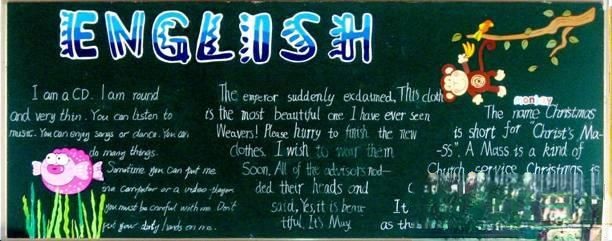 ENGLISH
I am a CD. I am round
and very thin. You can listen to
music. You can enjoy songs or dance. You can
do many things.
Sometime you can put me
one computer or a video-player
you must be careful with me. Don't
put your dirty hands on me.
The emperor suddenly exclaimed, This cloth
is the most beautiful one I have ever seen
Weavers! Please hurry to finish the new
clothes. I wish to wear them
Soon. All of the advisors nod-
ded their heads and
said, Yes, it is beau-
tiful. It's May
monkey
The name Christmas
is short for Christ's Ma-
-ss". A Mass is a kind of
Church service Christmas is
It
as the